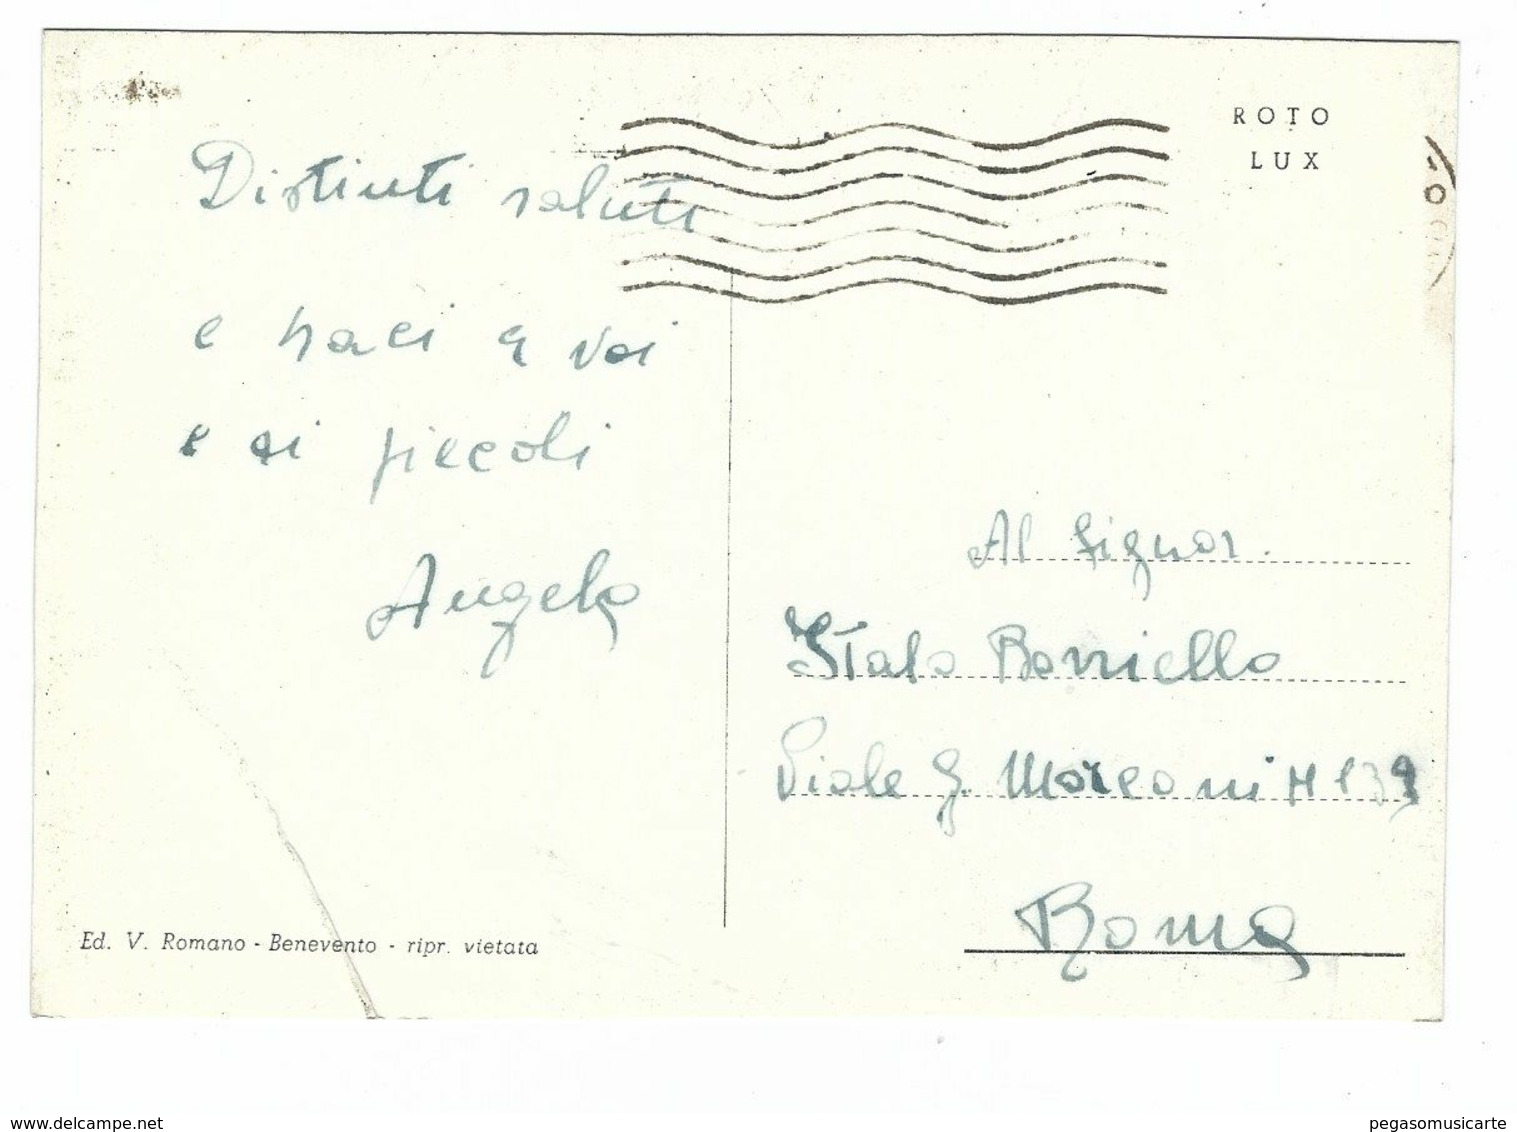 ROTO
LUX
Distinti saluti
e baci a voi
e ai piccoli
Angelo
Al Signor.
Italo Borriello
Viale G. Marconi N 139
Roma
Ed. V. Romano - Benevento - ripr. vietata
www.delcampe.net
pegasomusicarte